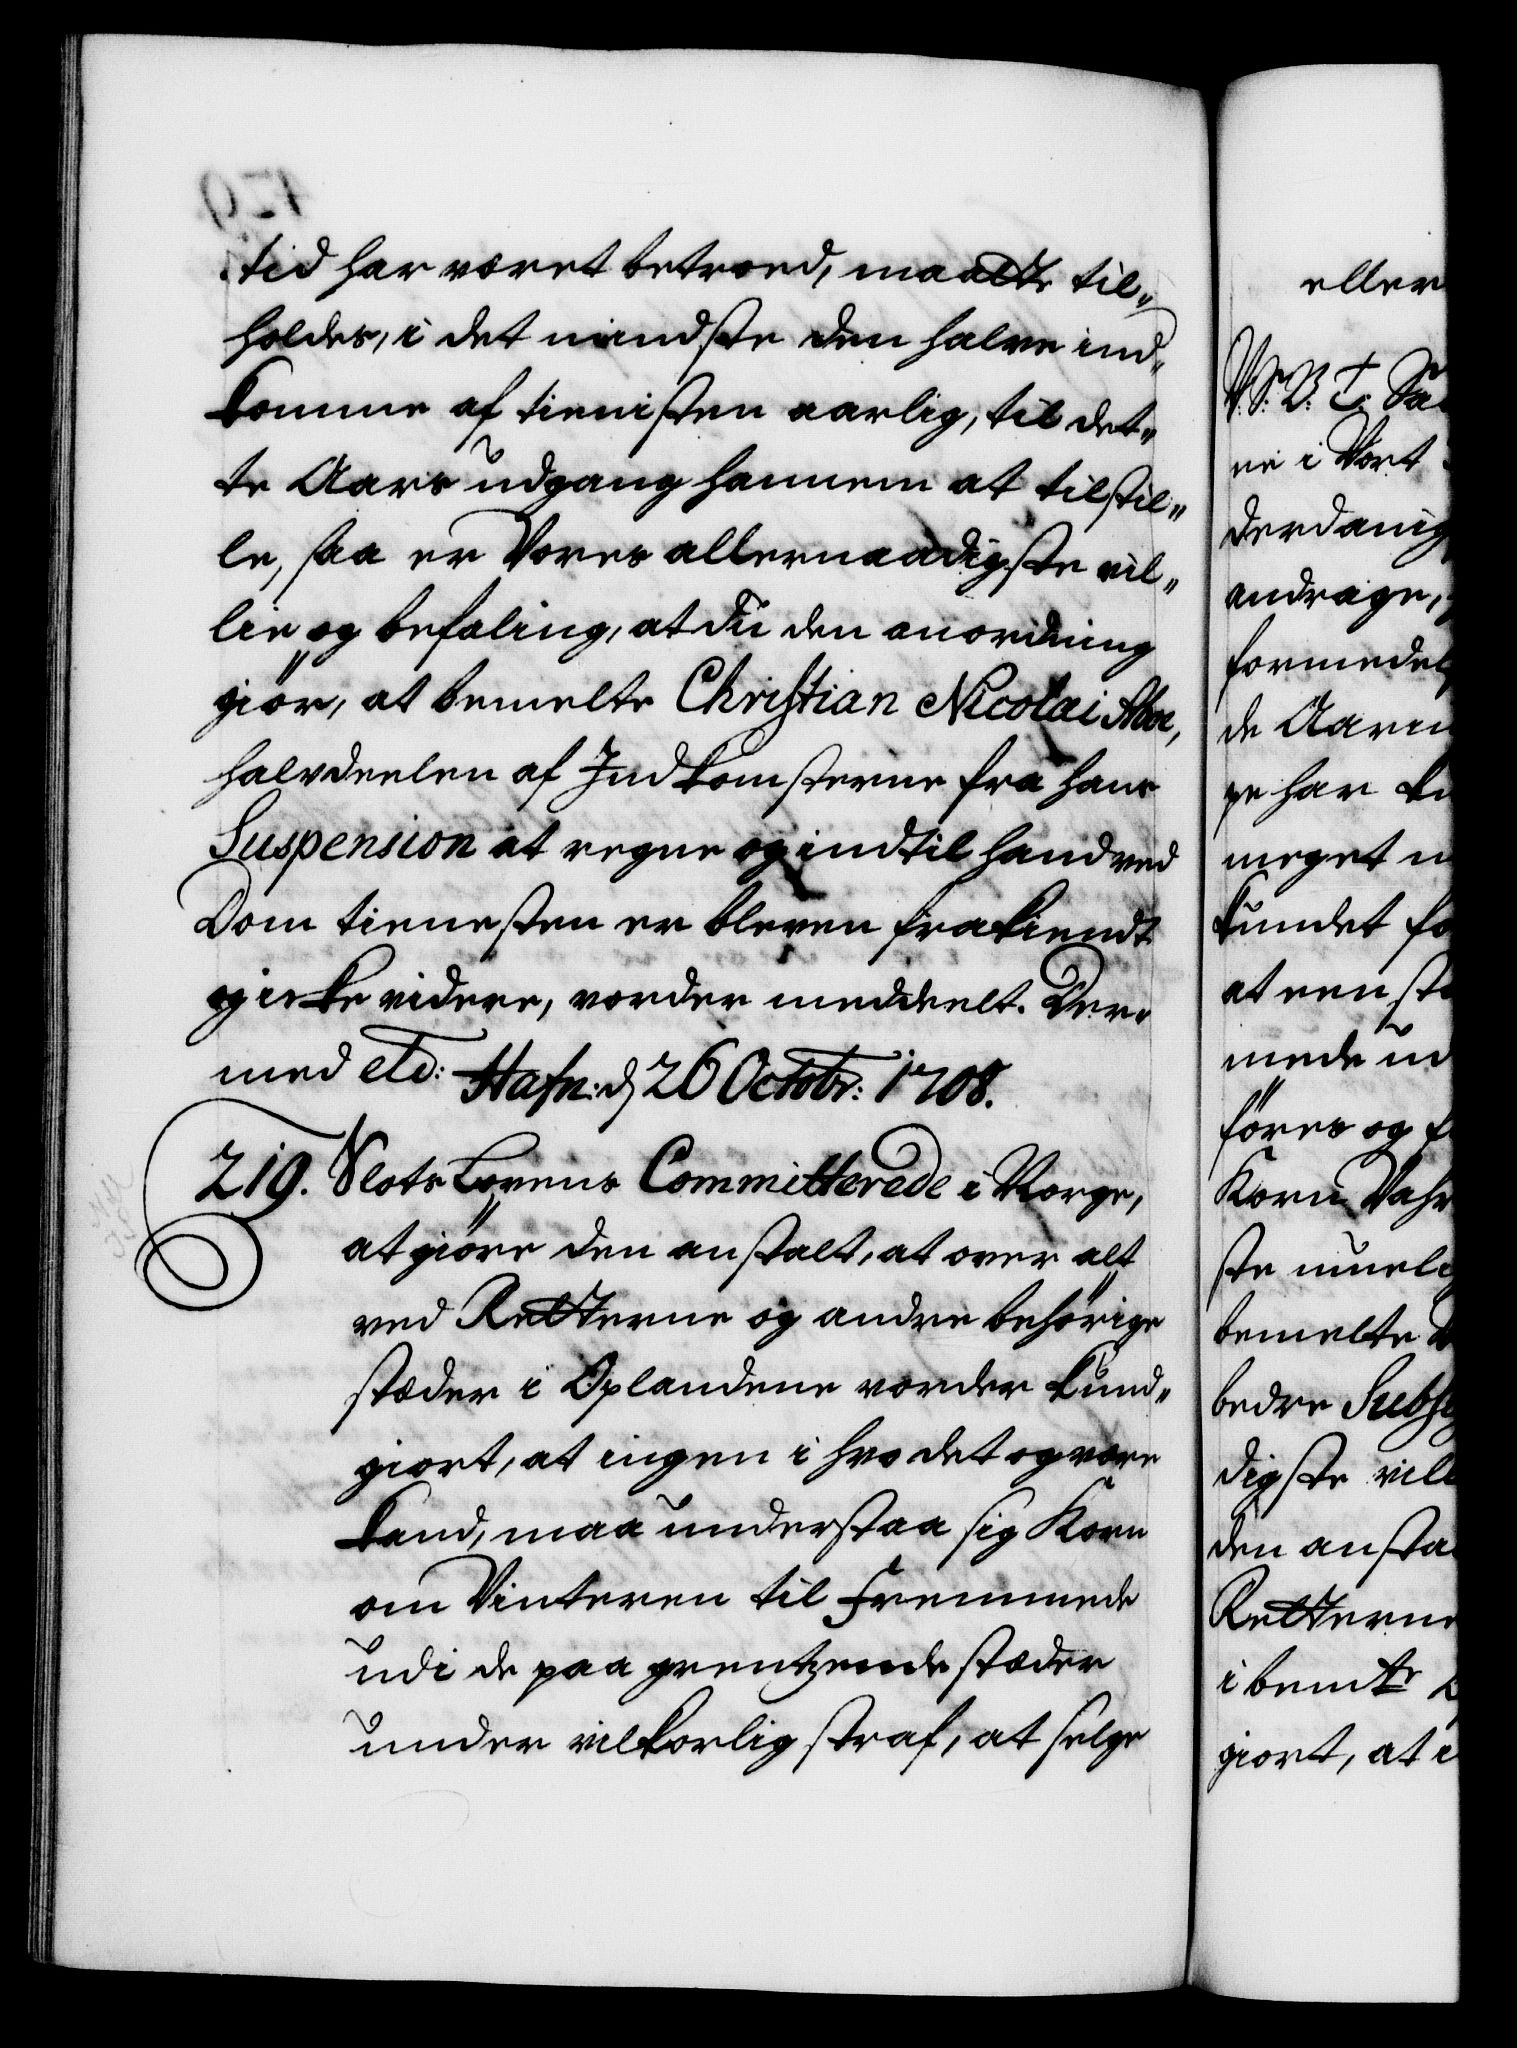 tid har været betroed, maatte til„
holdes, i det mindste den halve ind„
komme af tienisten aarlig, til det„
te Aars udgang hannem at tilstil„
le, saa er Vores allernaadigste vil„
lie og befaling, at du den anordning
giör, at bemelte Christian Nicolai
halvdeelen af Indkomsterne fra hans
Suspension at regne og indtil hand ved
Dom tienesten er bleven frakiendt
og icke videre, vorder meddeelt. Der„
med etc: Hafn: d 26 Octobr: 1708.
219. Slots Lovens Committerede i Norge,
at giöre den anstalt, at over alt
ved Retterne og andre behörige
stæder i Oplandene vorder kund„
giort, at ingen i hvo det og være
kand, maa understaa sig Korn
om Vinteren til Fremmede
udi de paa grentzende stæder
under vilkorlig straf, at selge
eller
ne i Vort
derdanig
andrage,
formedel
de Aarn
ge har
meget
kundet fo
at een
mede
föres og
Korn Vahr
ste
bemelte
bedre
digste vill
den ansta
Retterne
i bemte
giort, at i